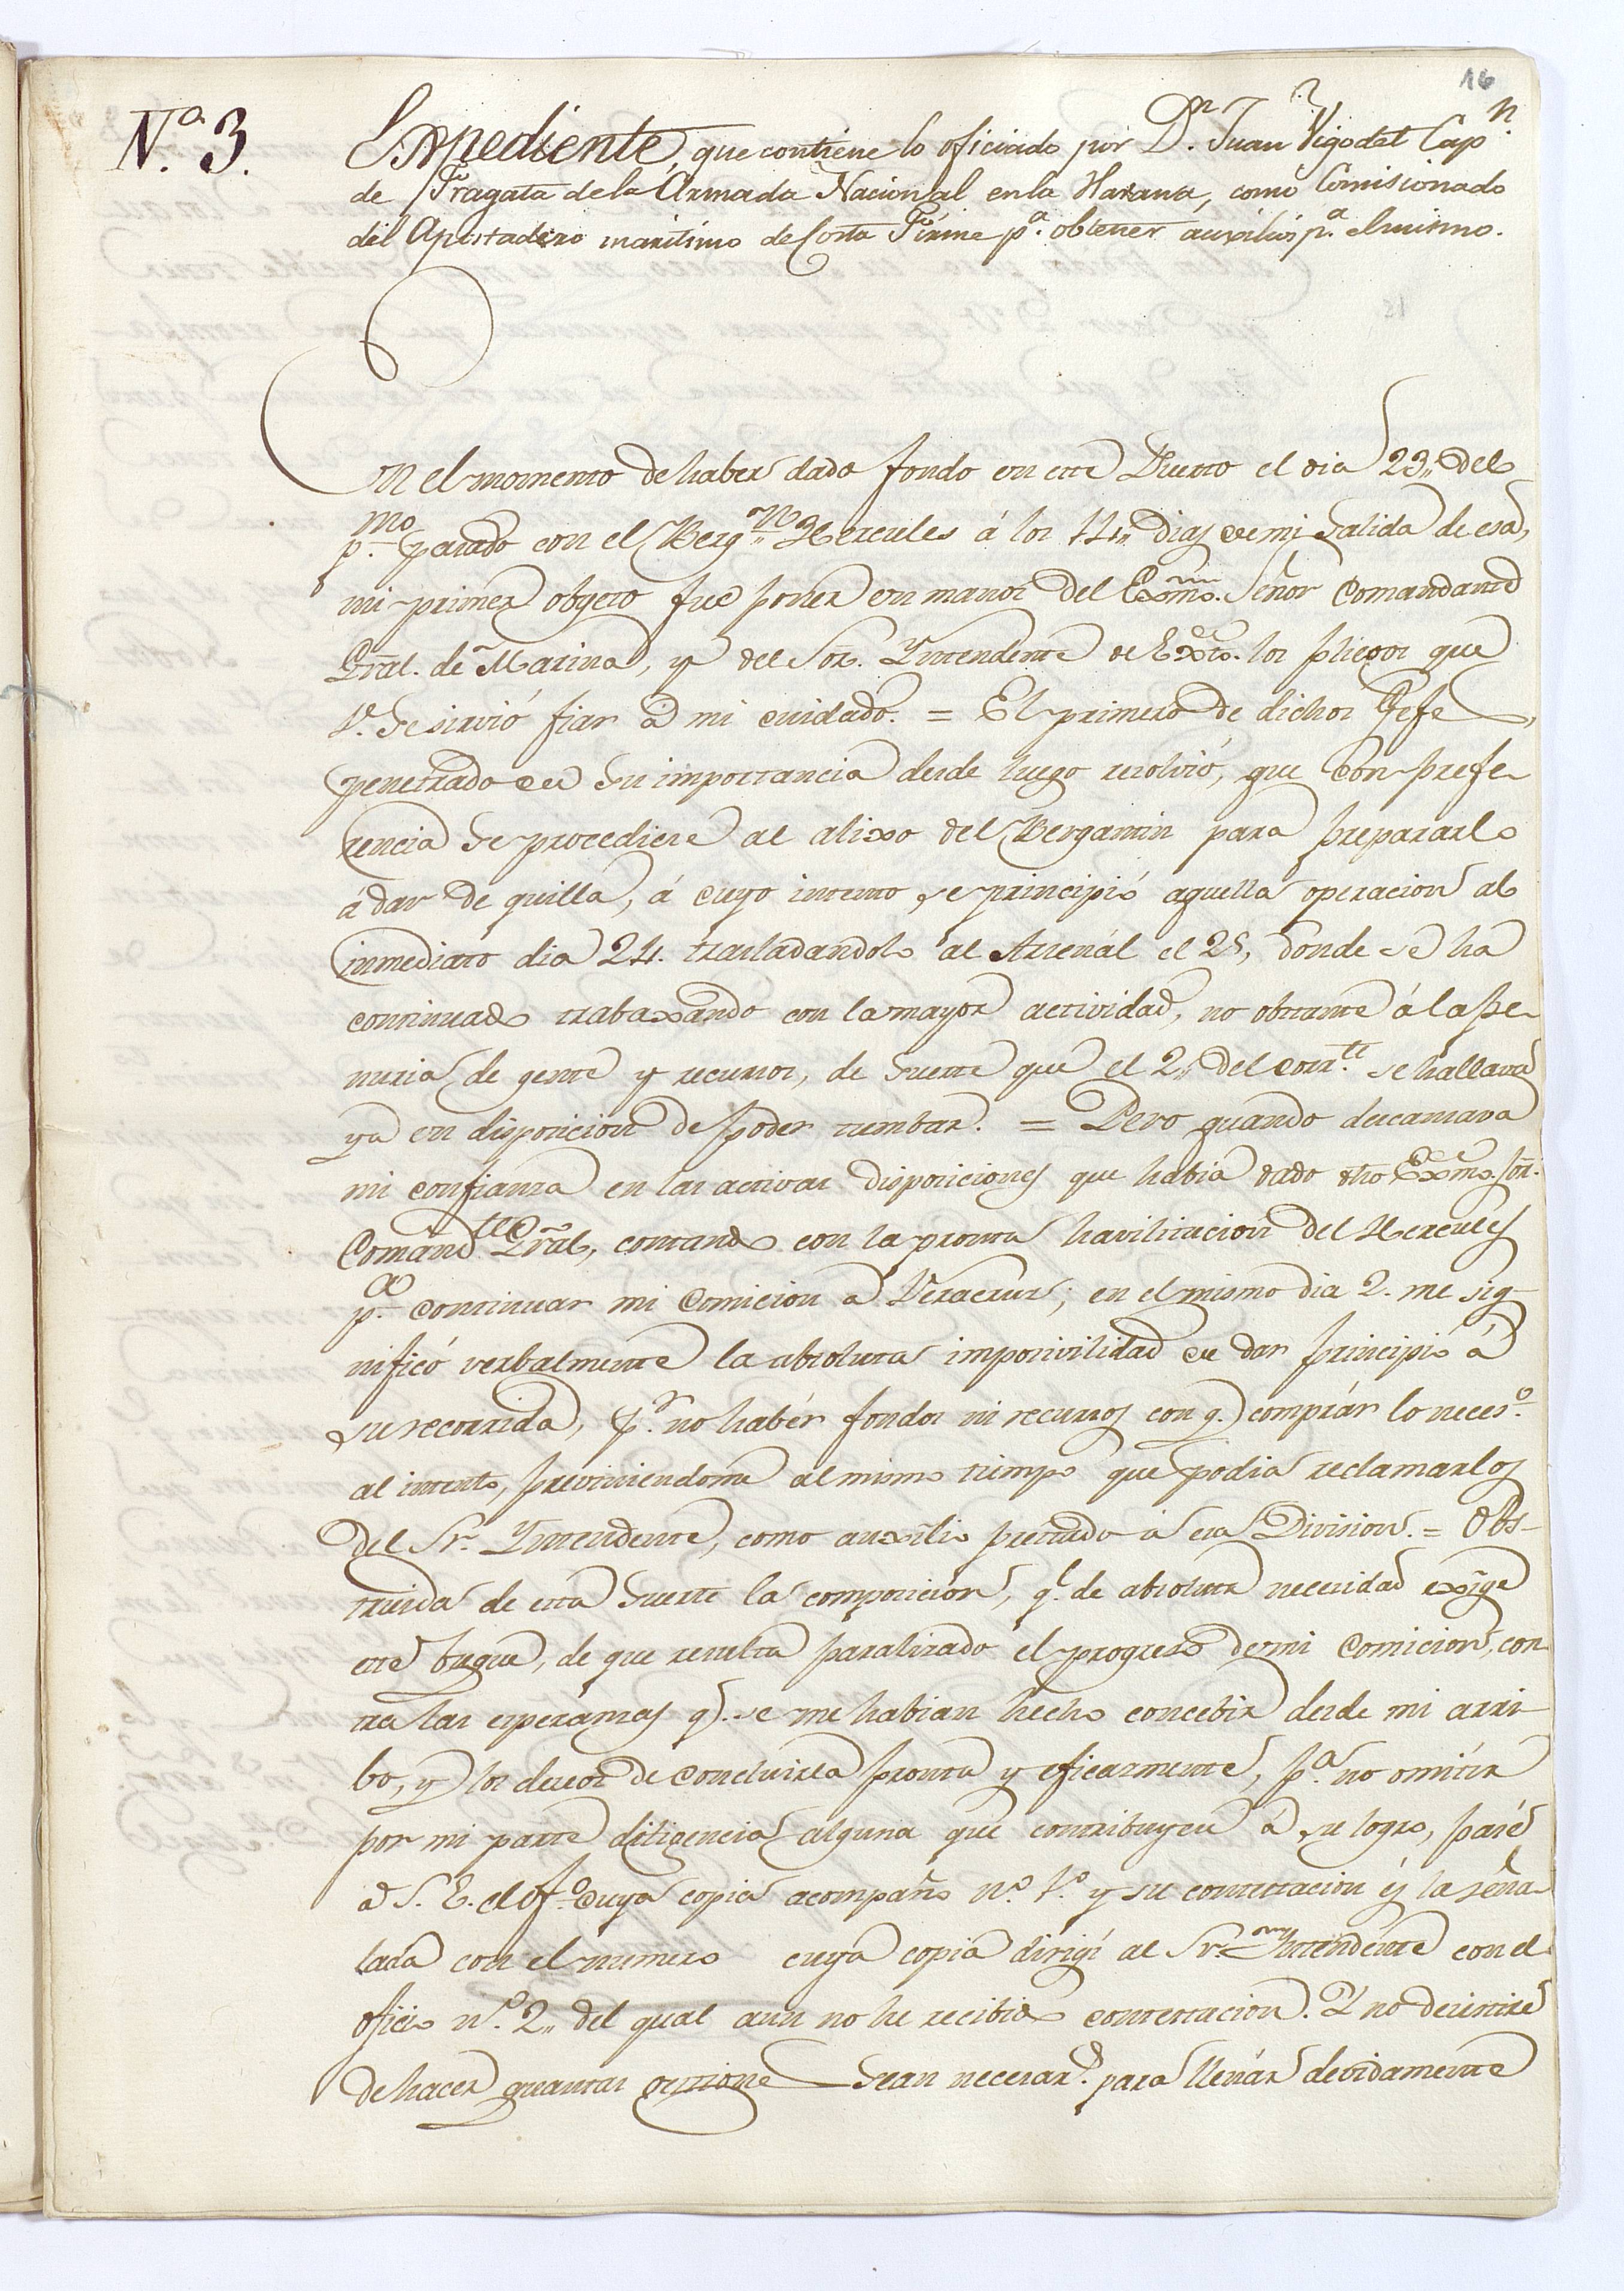 16
N.º 3.
Expediente, que contiene lo oficiado por D.n Juan Vigodet Cap.n
de Fragata de la Armada Nacional en la Havana, como Comisionado
del Apostadero maritimo de Costa Firme p.a obtener auxilios p.a el mismo.
En el momento de haber dado fondo en este Puerto el dia 23,, del
p.mo pasado con el Berg.n Hercules á los 14,, dias de mi salida de esa,
mi primer obgeto fue poner en manos del Exmo. Señor Comandante
Gral. de Marina, y del Sor. Yntendente de Exto. los pliegos que
V. Se sirvió fiar á mi cuidado. = El primero de dichos Gefes,
penetrado de su importancia desde luego resolvió, que con prefe-
rencia se procediese al alixo del Bergantin para prepararlo
á dar de quilla, á cuyo intento se principió aquella operacion al
inmediato dia 24. trasladandolo al Arsenál el 25, donde se ha
continuado trabaxando con la mayor actividad, no obstante á la pe-
nuria de gente y recursos, de suerte que el 2,, del corr.te se hallava
ya en disposicion de poder tumbar. = Pero quando descansava
mi confianza en las activas disposiciones que habia dado dho Exmo. Sor.
Comand.te Gral, contando con la pronta havilitacion del Hercules
p.a continuar mi Comicion á Veracruz; en el mismo dia 2. me sig-
nificó verbalmente la absoluta imposivilidad de dar principio á
su recorrida, p.r no habér fondos ni recursos con q. comprár lo neces.o
al intento, previniendome al mismo tiempo que podia reclamarlos
del Sr. Yntendente, como auxilio prestado á esa Division. = Obs-
truida de esta suerte la composicion, q.e de absoluta necesidad exige
este buque, de que resulta paralizado el progreso de mi Comicion, con-
tra las esperanzas q.e se me habian hecho concebir desde mi arri-
bo, y los deseos de concluirla pronta y eficazmente, p.a no omitir
por mi parte diligencia alguna que contribuyese á su logro, pasé
á S. E. el of.o cuya copia acompaño n.o 1.o y su contestacion és la séña-
lada con el numero cuya copia dirigí al Sr. Yntendente con el
oficio n.o 2,, del qual aun no he recibido contestacion. Y no desistiré
de hacer quantas gestiones sean necesar.s para llenár devidamente